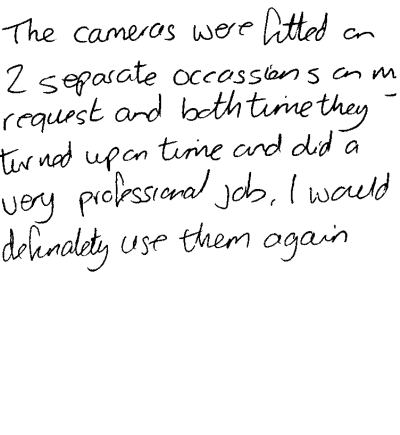 The cameras were fitted on
2 separate occassions on m
request and both time they
turned up on time and did a
very professional job, I would
definately use them again